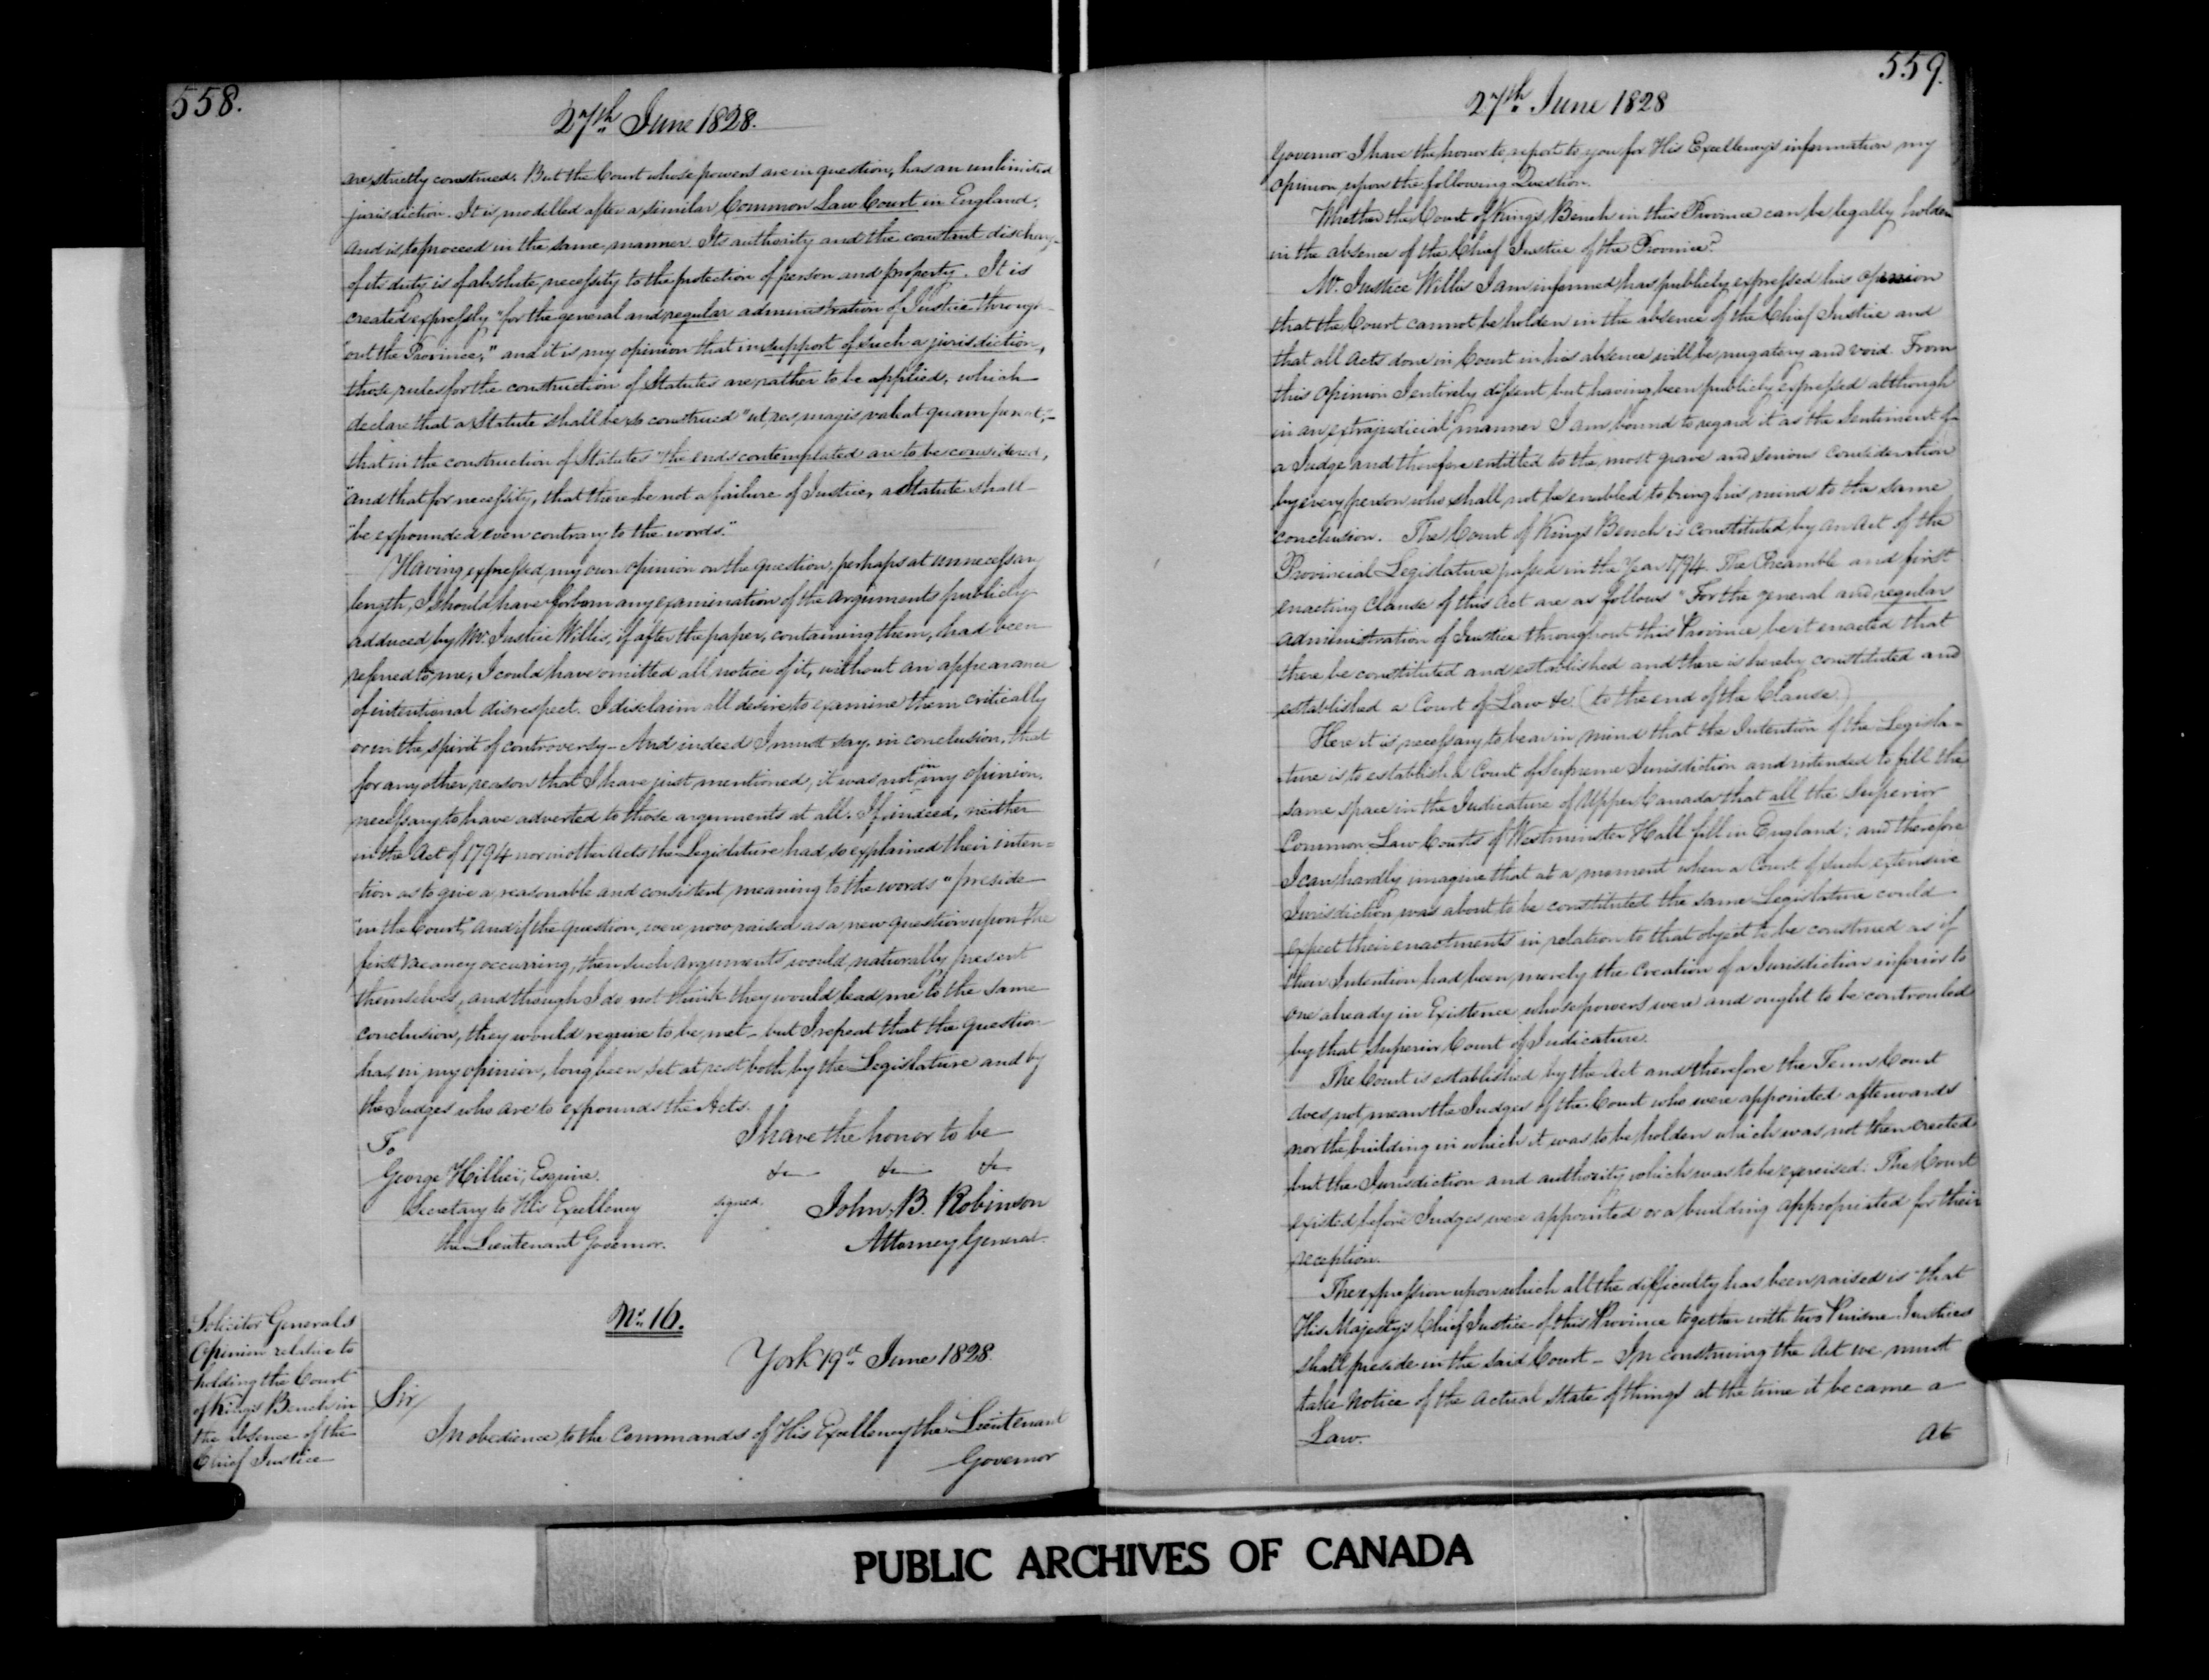 558.
27th June 1828.
are strictly construed. But the Court whose powers are in question, has an unlimited
jurisdiction. It is modelled after a similar Common Law Court in England,
and is to proceed in the same manner. Its authority and the constant discharge
of its duty is of absolute necessity to the protection of person and property. It is
created expressly "for the general and regular administration of Justice through-
"out the Province," and it is my opinion that in support of such a jurisdiction,
those rules for the construction of Statutes are rather to be applied, which
declare that a Statute shall be so construed "ut res magis valeat quam pereat,"-
that in the construction of Statutes "the ends contemplated are to be considered,
"and that for necessity, that there be not a failure of Justice, a Statute shall
"be expounded even contrary to the words."
Having expressed my own opinion on the question, perhaps at unnecessary
length, I should have forborn any examination of the arguments publicly
adduced by Mr. Justice Willis, if after the paper, containing them, had been
referred to me, I could have omitted all notice of it, without an appearance
of intentional disrespect. I disclaim all desire to examine them critically
or in the spirit of controversy - And indeed I must say, in conclusion, that
for any other reason that I have just mentioned, it was not in my opinion,
necessary to have adverted to those arguments at all. If indeed, neither
in the Act of 1794 nor in other Acts the Legislature had so explained their inten=
tion as to give a reasonable and consistent meaning to the words "preside
"in the Court," and if the question, were now raised as a new question upon the
first vacancy occurring, then such arguments would naturally present
themselves, and though I do not think they would lead me to the same
conclusion, they would require to be met - but I repeat that the question
has in my opinion, long been set at rest both by the Legislature and by
the Judges who are to expound the Acts.
I have the honor to be
&c &c &c
To
George Hillier, Esquire.
Secretary to His Excellency
the Lieutenant Governor.
signed. John B. Robinson
Attorney General.
No. 16.
Solicitor Generals
Opinion relative to
holding the Court
of Kings Bench in
the absence of the
Chief Justice
York 19th June 1828.
Sir/
In obedience to the Commands of His Excellency the Lieutenant
Governor
559.
27th June 1828
Governor I have the honor to report to you for His Excellency's information my
opinion upon the following Question.
Whether the Court of King's Bench in this Province can be legally holden
in the absence of the Chief Justice of the Province?
Mr. Justice Willis I am informed has publicly expressed his opinion
that the Court cannot be holden in the absence of the Chief Justice and
that all Acts done in Court in his absence will be nugatory and void. From
this opinion I entirely dissent but having been publicly expressed although
in an extrajudicial manner I am bound to regard it as the Sentiment of
a Judge and therefore entitled to the most grave and serious consideration
by every person who shall not be enabled to bring his mind to the same
conclusion. The Court of Kings Bench is constituted by an Act of the
Provincial Legislature passed in the Year 1794. The Preamble and first
enacting Clause of this Act are as follows "For the general and regular
administration of Justice throughout this Province be it enacted that
there be constituted and established and there is hereby constituted and
established a Court of Law &c. (to the end of the Clause)
Here it is necessary to bear in mind that the Intention of the Legisla=
ture is to establish a Court of Supreme Jurisdiction and intended to fill the
same space in the Judicature of Upper Canada that all the Superior
Common Law Courts of Westminster Hall fill in England; and therefore
I can hardly imagine that at a moment when a Court of such extensive
Jurisdiction was about to be constituted the same Legislature could
expect their enactments in relation to that object to be construed as if
their Intention had been merely the Creation of a Jurisdiction inferior to
one already in Existence whose powers were and ought to be controuled
by that Superior Court of Judicature.
The Court is established by the Act and therefore the Term Court
does not mean the Judges of the Court who were appointed afterwards
nor the building in which it was to be holden which was not then erected
but the Jurisdiction and authority which was to be exercised. The Court
existed before Judges were appointed or a building appropriated for their
reception.
The expression upon which all the difficulty has been raised is "that
His Majesty's Chief Justice of this Province together with two Puisne Justices
shall preside in the said Court - In construing the Act we must
take Notice of the actual state of things at the time it became a
Law.
At
PUBLIC ARCHIVES OF CANADA